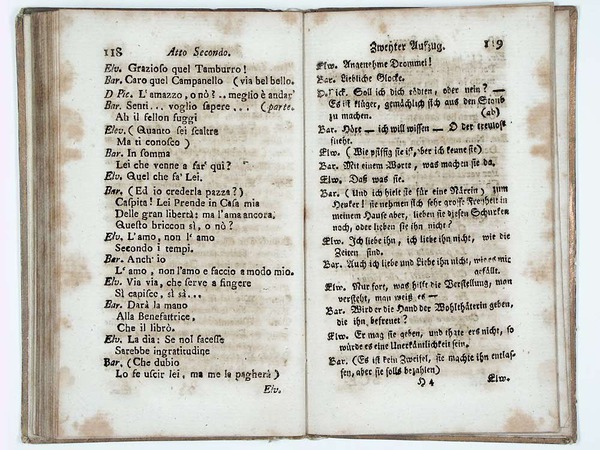 118 Atto Secondo.
Elv. Grazioso quel Tamburro!
Bar. Caro quel Campanello (via bel bello.
D Pic. L'amazzo, o nò? .. meglio è andar'
Bar. Senti... voglio sapere... (parte.
Ah il fellon fuggi
Elev. (Quanto sei scaltre
Ma ti conosco)
Bar. In somma
Lei che venne a far' qui?
Elv. Quel che fa' Lei.
Bar. (Ed io crederla pazza?)
Caspita! Lei Prende in Casa mia
Delle gran libertà: ma l'ama ancora.
Questo briccon sì, o nò?
Elv. L'amo, non l'amo
Secondo i tempi.
Bar. Anch' io
L'amo, non l'amo e faccio a modo mio.
Elv. Via via, che serve a fingere
Sì capisce, sì sà...
Bar. Darà la mano
Alla Benefattrice,
Che il librò.
Elv. La dia: Se nol facesse
Sarebbe ingratitudine
Bar. (Che dubio
Lo fe uscir lei, ma me la pagherà)
Elv.
Zweyter Aufzug. 119
Elw. Angenehme Drommel!
Bar. Liebliche Glocke.
D. Pick. Soll ich dich tödten, oder nein? —
Es ist klüger, gemächlich sich aus den Staub
zu machen. (ab)
Bar. Höre — ich will wissen — O der treulose
flieht.
Elw. (Wie pfiffig sie ist, aber ich kenne sie)
Bar. Mit einem Worte, was machen sie da.
Elw. Daß was sie.
Bar. (Und ich hielt sie für eine Närrin) zum
Henker! sie nehmen sich sehr grosse Freyheit in
meinem Hause aber, lieben sie diesen Schurken
noch, oder lieben sie ihn nicht?
Elw. Ich liebe ihn, ich liebe ihn nicht, wie die
Zeiten sind.
Bar. Auch ich liebe und Liebe ihn nicht, wie es mir
gefällt.
Elw. Nur fort, was hilft die Verstellung, man
versteht, man weiß es —
Bar. Wird er die Hand der Wohlthäterin geben,
die ihn befreuet?
Elw. Er mag sie geben, und thäte ers nicht, so
würde es eine Unerkäntlichkeit sein.
Bar. (Es ist kein Zweifel, sie machte ihn entlas-
sen, aber sie solls bezahlen)
H 4 Elw.